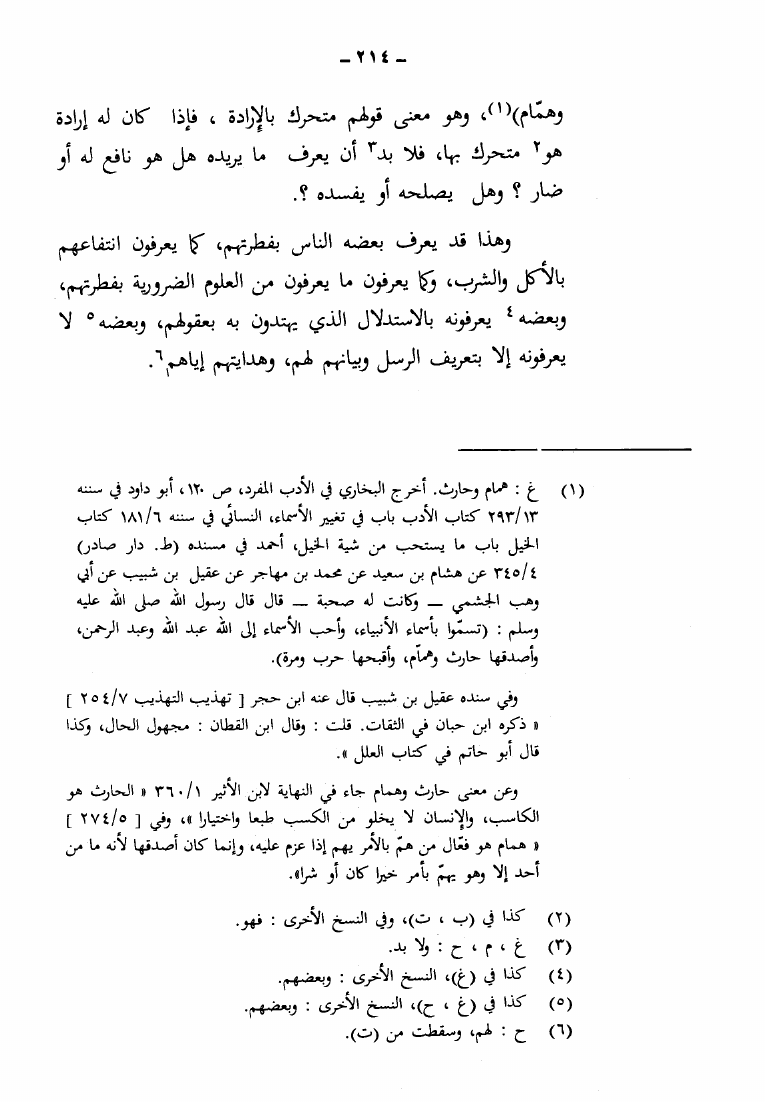 – ٢١٤ –
وهمّام)(١)، وهو معنى قولهم متحرك بالإرادة ، فإذا كان له إرادة
هو٢ متحرك بها، فلا بد٣ أن يعرف ما يريده هل هو نافع له أو
ضار ؟ وهل يصلحه أو يفسده ؟.
وهذا قد يعرف بعضه الناس بفطرتهم، كما يعرفون انتفاعهم
بالأكل والشرب، وكما يعرفون ما يعرفون من العلوم الضرورية بفطرتهم،
وبعضه٤ يعرفونه بالاستدلال الذي يهتدون به بعقولهم، وبعضه٥ لا
يعرفونه إلا بتعريف الرسل وبيانهم لهم، وهدايتهم إياهم٦.
(١) غ : همام وحارث. أخرج البخاري في الأدب المفرد، ص ١٢٠، أبو داود في سننه
٢٩٣/١٣ كتاب الأدب باب في تغيير الأسماء، النسائي في سننه ١٨١/٦ كتاب
الخيل باب ما يستحب من شية الخيل، أحمد في مسنده (ط. دار صادر)
٣٤٥/٤ عن هشام بن سعيد عن محمد بن مهاجر عن عقيل بن شبيب عن أبي
وهب الجشمي – وكانت له صحبة – قال قال رسول الله صلى الله عليه
وسلم : (تسمّوا بأسماء الأنبياء، وأحب الأسماء إلى الله عبد الله وعبد الرحمن،
وأصدقها حارث وهمّام، وأقبحها حرب ومرة).
وفي سنده عقيل بن شبيب قال عنه ابن حجر [ تهذيب التهذيب ٢٥٤/٧ ]
« ذكره ابن حبان في الثقات. قلت : وقال ابن القطان : مجهول الحال، وكذا
قال أبو حاتم في كتاب العلل ».
وعن معنى حارث وهمام جاء في النهاية لابن الأثير ٣٦٠/١ « الحارث هو
الكاسب، والإنسان لا يخلو من الكسب طبعا واختيارا »، وفي [ ٢٧٤/٥ ]
« همام هو فعّال من همّ بالأمر يهم إذا عزم عليه، وإنما كان أصدقها لأنه ما من
أحد إلا وهو يهمّ بأمر خيرا كان أو شرا».
(٢) كذا في (ب ، ت)، وفي النسخ الأخرى : فهو.
(٣) غ ، م ، ح : ولا بد.
(٤) كذا في (غ)، النسخ الأخرى : وبعضهم.
(٥) كذا في (غ ، ح)، النسخ الأخرى : وبعضهم.
(٦) ح : لهم، وسقطت من (ت).